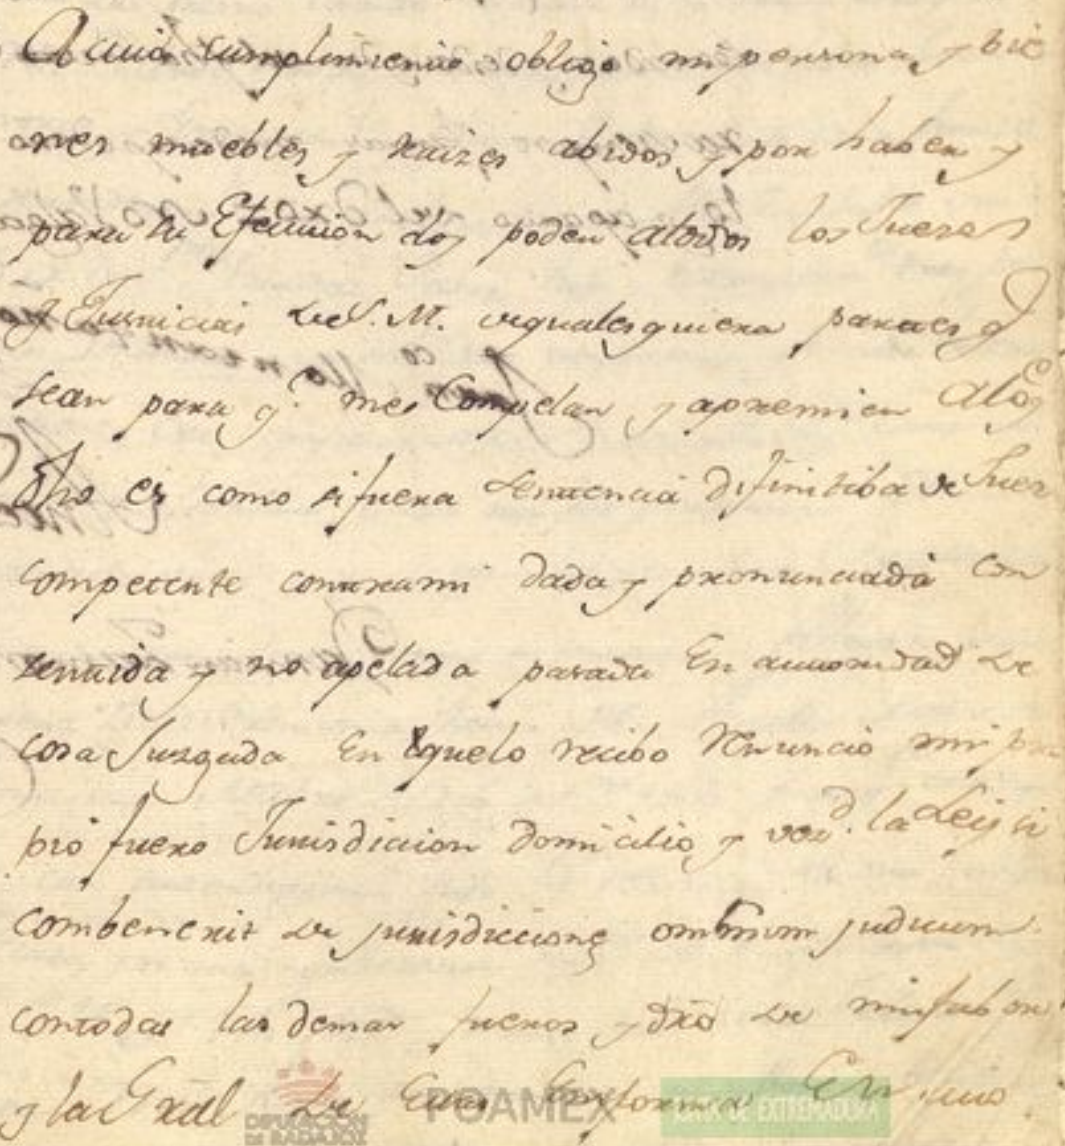 A cuio cumplimiento obligo mi persona, y bie
nes muebles y raizes abidos y por haber y
para su Efecucion doy poder atodos los Jueces
y Justicias de S. M. de qualesquiera partes q.
sean para q. me Compelan y apremien alo
dho es como si fuera sentencia difinitiba de Juez
competente contrami dada y pronunciada con
sentida y no apelada pasada En autoridad de
cosa Juzgada En que lo recibo Renuncio mi pro
pio fuero Jurisdicion domicilio, y vez.d la Lei si
combenerit de jurisdiccione omnium judicum
contodas las demas fueros y dro de mi fabor
y la Gral de Ellas En forma En cuio
DIPUTACIÓN DE BADAJOZ POAMEX JUNTA DE EXTREMADURA